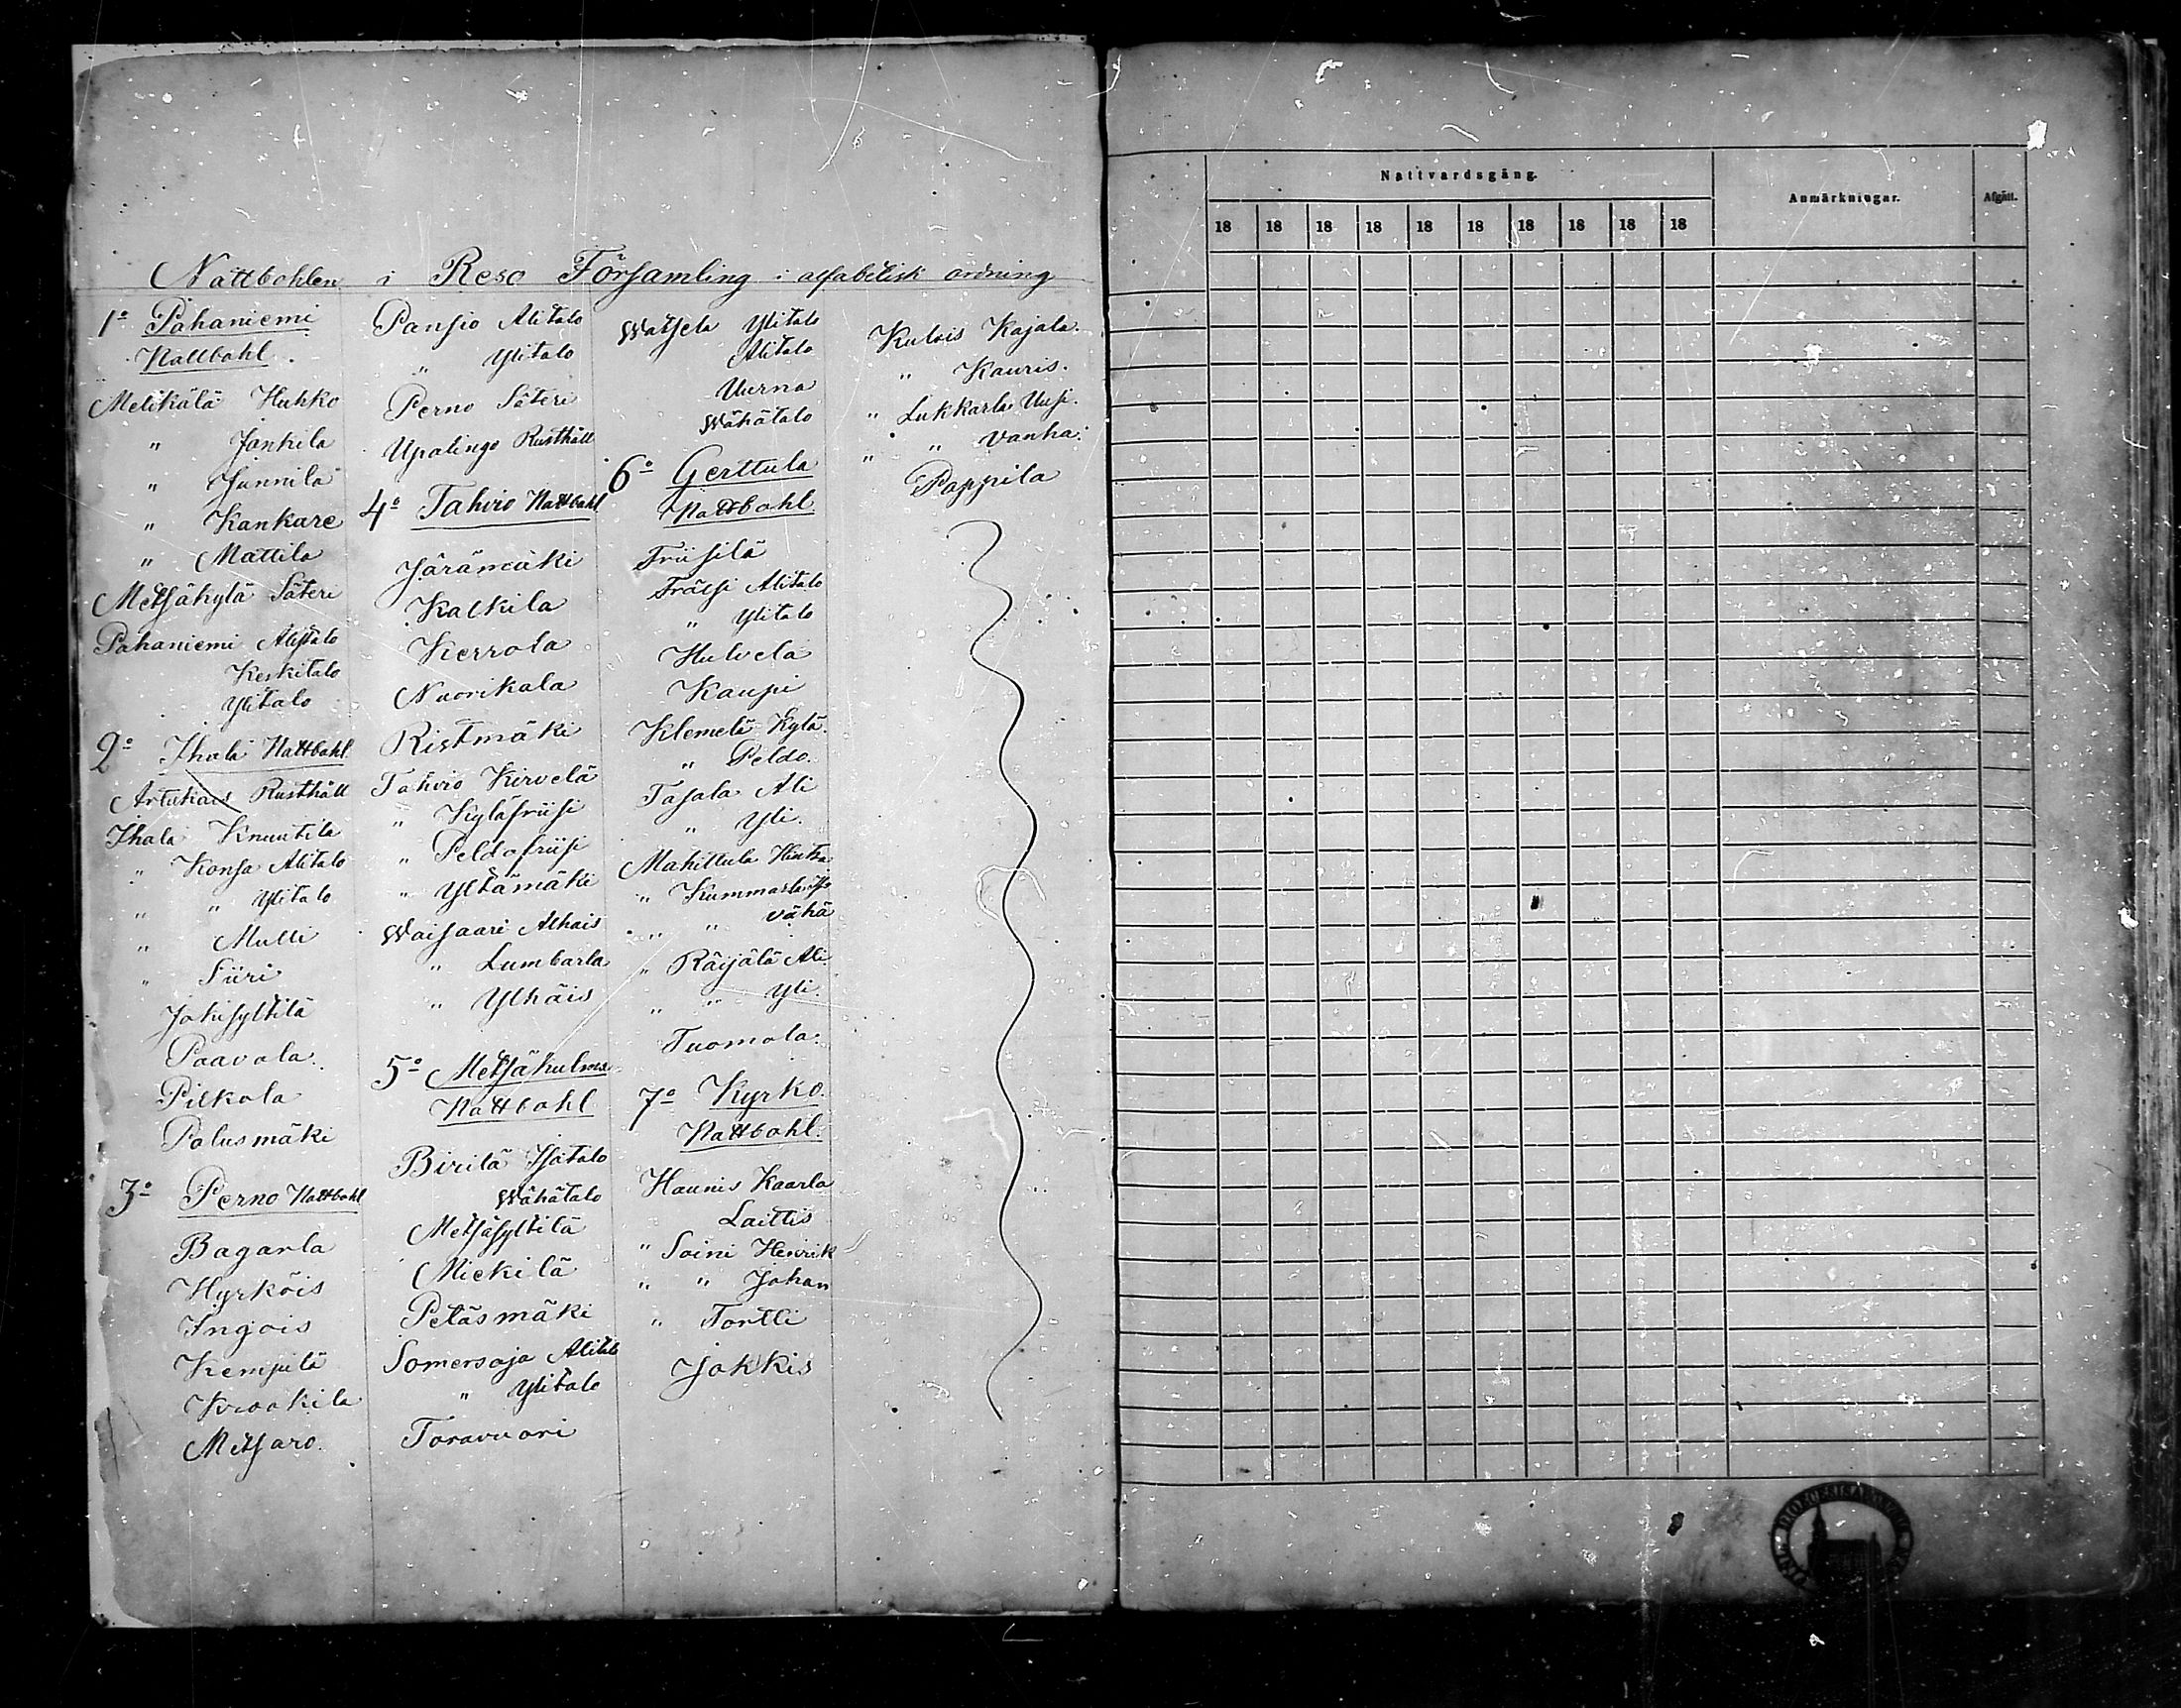 Nattbohlen i Reso Församling i alfabetisk ordning
1o Pahaniemi
Nattbohl.
Melikälä Huhko
" Jankila
" Junnila
" Kankare
" Mattila
Metsäkylä Säteri
Pahaniemi Alitalo
Keskitalo
Ylitalo
2o Ihala Nattbohl.
Artukais Rusthåll
Ihala Knuutila
" Konsa Alitalo
" " Ylitalo
" Mulli
" Siiri
Jokisyltilä
Paavola.
Pilkola
Palusmäki
3o Perno Nattbohl
Bagarla
Hyrköis
Ingois
Kempilä
Krookila
Metsaro.
Pansio Alitalo
" Ylitalo
Perno Säteri
Upalingo Rusthåll
4o Tahvio Nattbohl
Järämäki
Kalkila
Kerrola
Nuorikala
Ristmäki
Tahvio Kirvelä
" Kyläfriisi
" Peldofriisi
" Yltämäki
Waisaari Alhais
" Lumbarla
" Ylhäis
5o Metsäkulma
Nattbohl
Birilä Isotalo
Wähätalo
Metsäsyltilä
Mickilä
Petäsmäki
Somersoja Alitalo
" Ylitalo
Toravuori
Watsela Ylitalo
Alitalo
Uurna
Wähätalo
6o Gerttula
Nattbohl
Friisilä
Frälsi Alitalo
" Ylitalo
Hulvela
Kaupi
Klemelä Kylä.
" Peldo.
Tasala Ali
" Yli.
Mahittula Hintsa
" Kummarla Iso
" " vähä
" Räijälä Ali.
" " Yli.
Tuomola.
7o Kyrko.
Nattbohl.
Haunis Kaarla
Laittis
" Soini Henrik
" " Johan
" Tortti
Jakkis
Kulois Kajala.
" Kauris.
" Lukkarla Uusi.
" " Vanha.
Pappila
Nattvardsgång.
Anmärkningar.
Afgått.
18 18 18 18 18 18 18 18 18 18